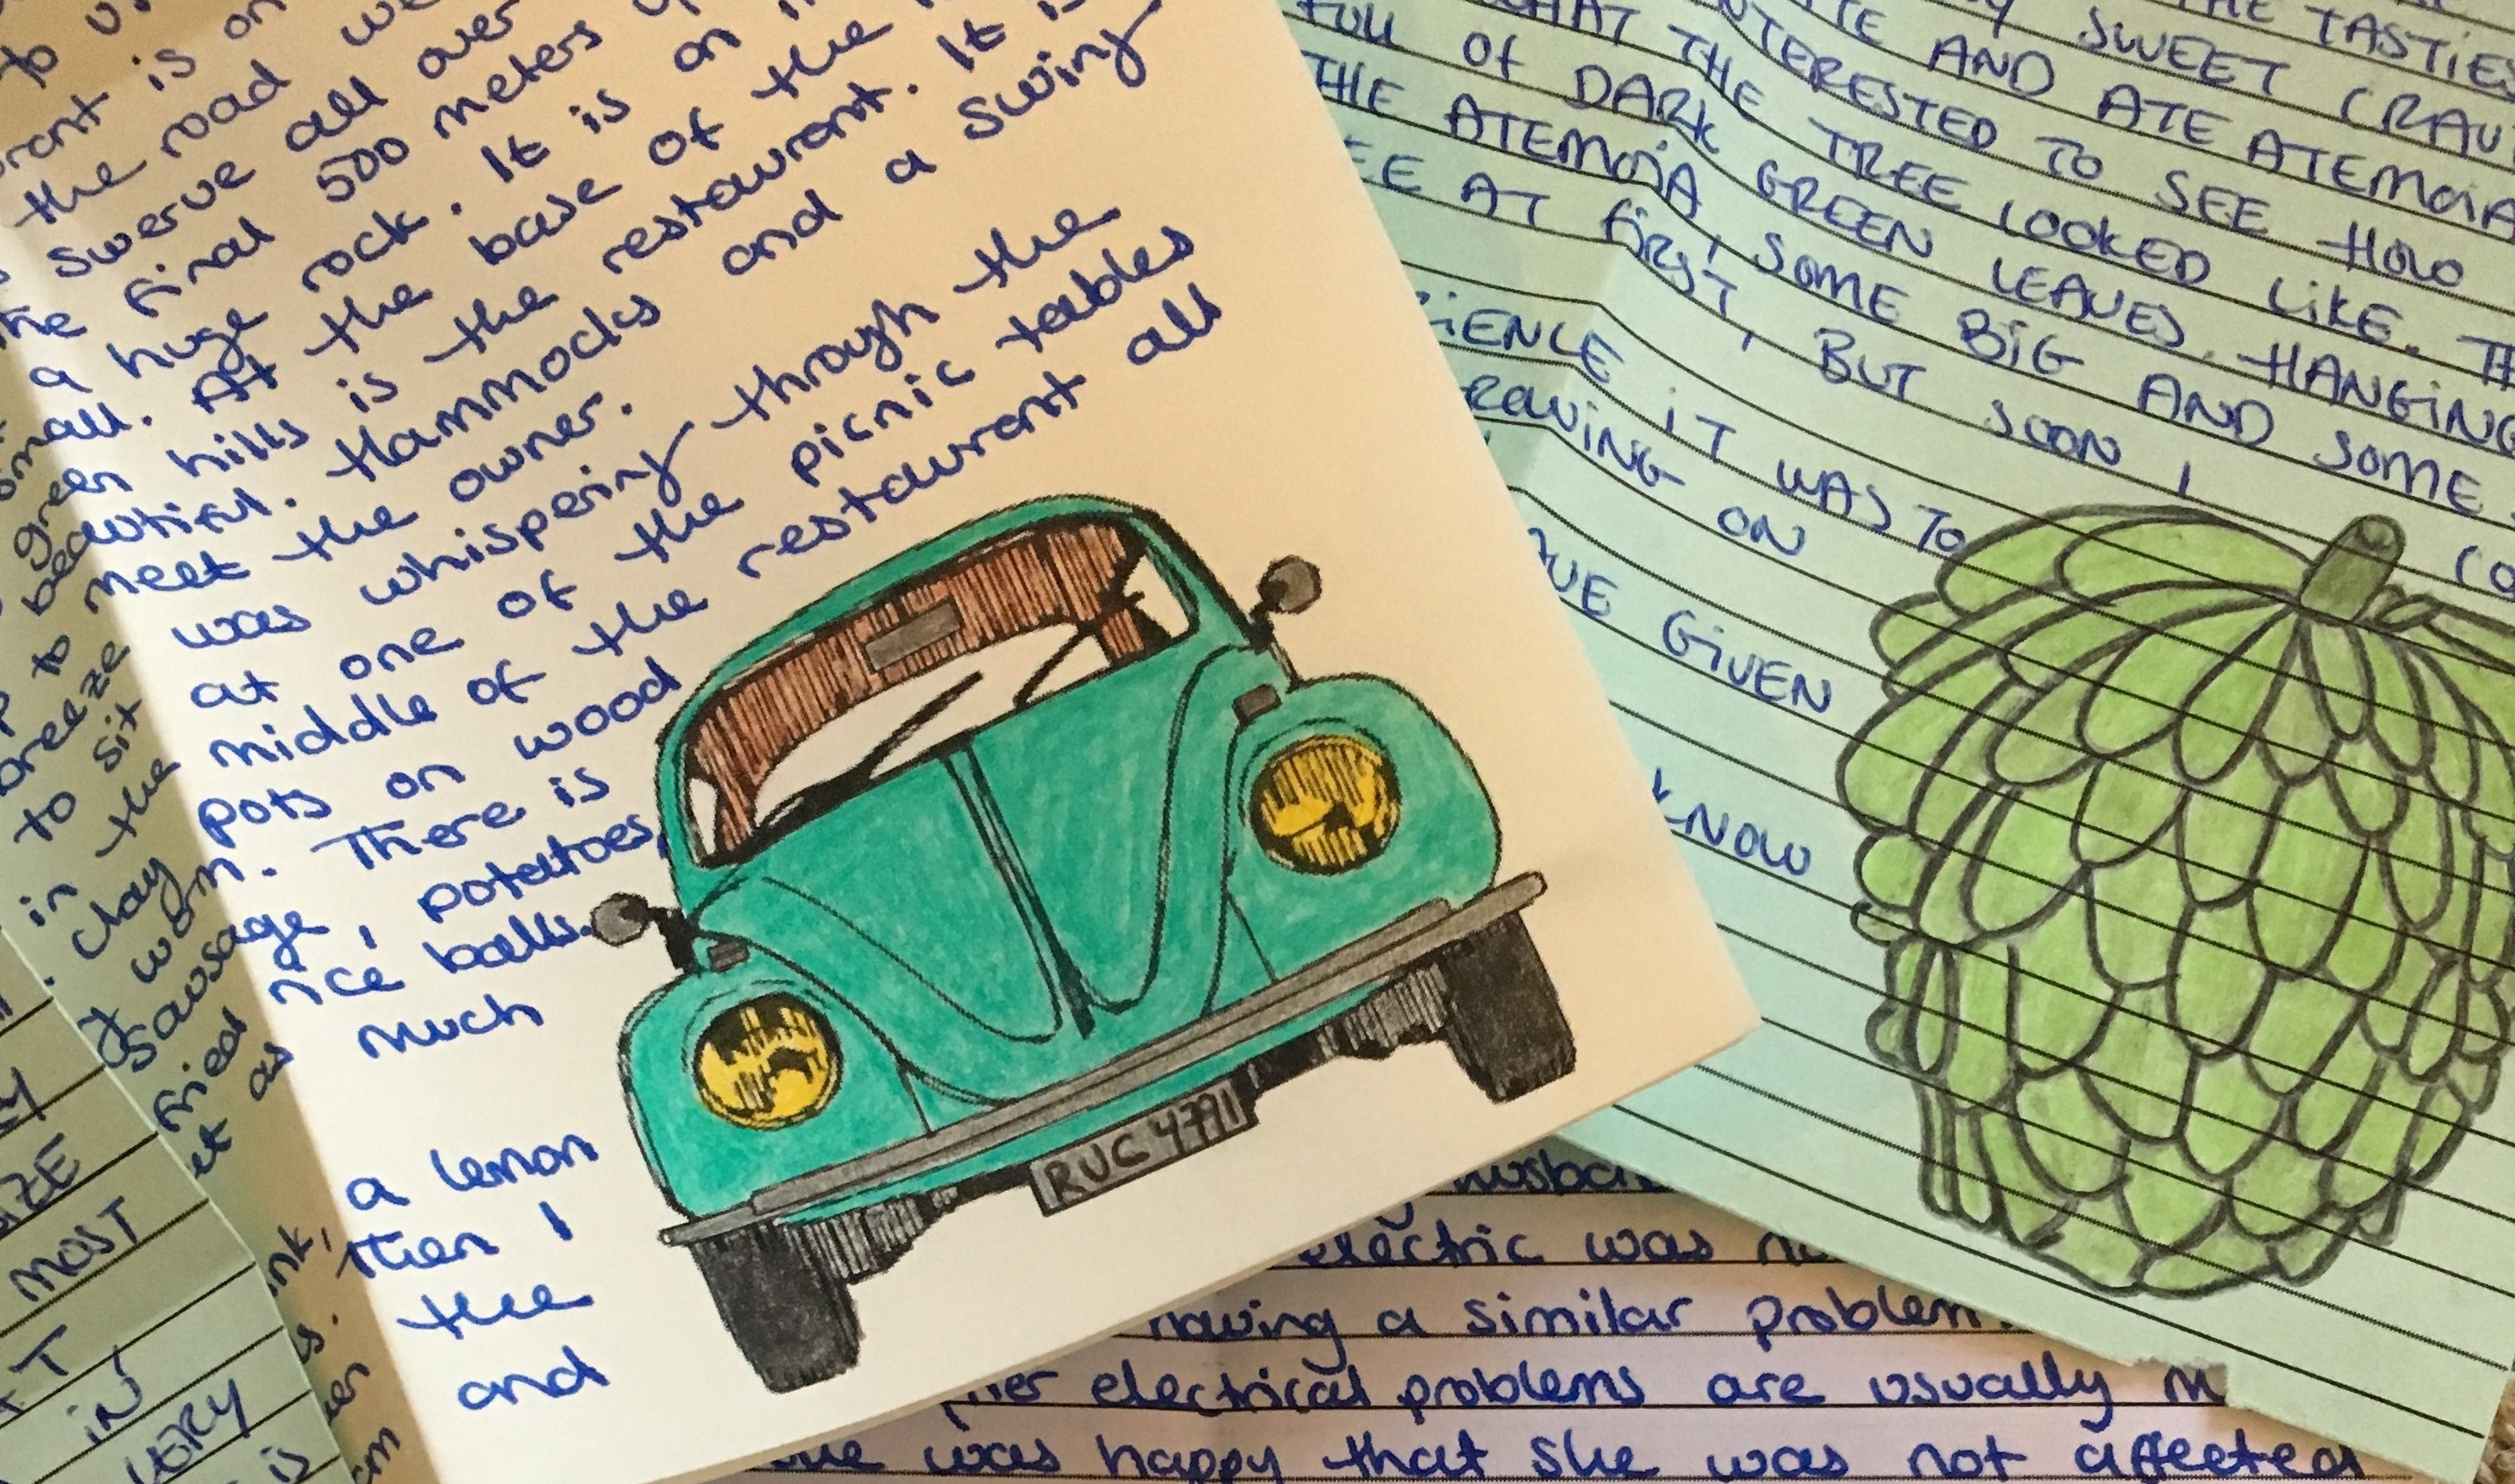 to
is on
the road we
swerve all over
the final 500 meters
a huge rock. It is on
small. At the base of the
green hills is the restaurant. It is
beautiful. Hammocks and a swing
to meet the owner.
breeze was whispering through the
to sit at one of the picnic tables
in the middle of the restaurant all
clay pots on wood
There is
sausage, potatoes,
fried rice balls.
as much
a lemon
then I
the
and
RUC 4791
THE TASTIES
SWEET CRAV
AND ATE ATEMOIA
TO SEE HOW
WHAT THE TREE LOOKED LIKE. TH
FULL OF DARK GREEN LEAVES. HANGING
THE ATEMOIA, SOME BIG AND SOME
AT FIRST, BUT SOON I CO
IT WAS TO
ON
GIVEN
KNOW
electric was
having a similar problem
electrical problems are usually
was happy that she was not affected
MOST
IN
VERY
is